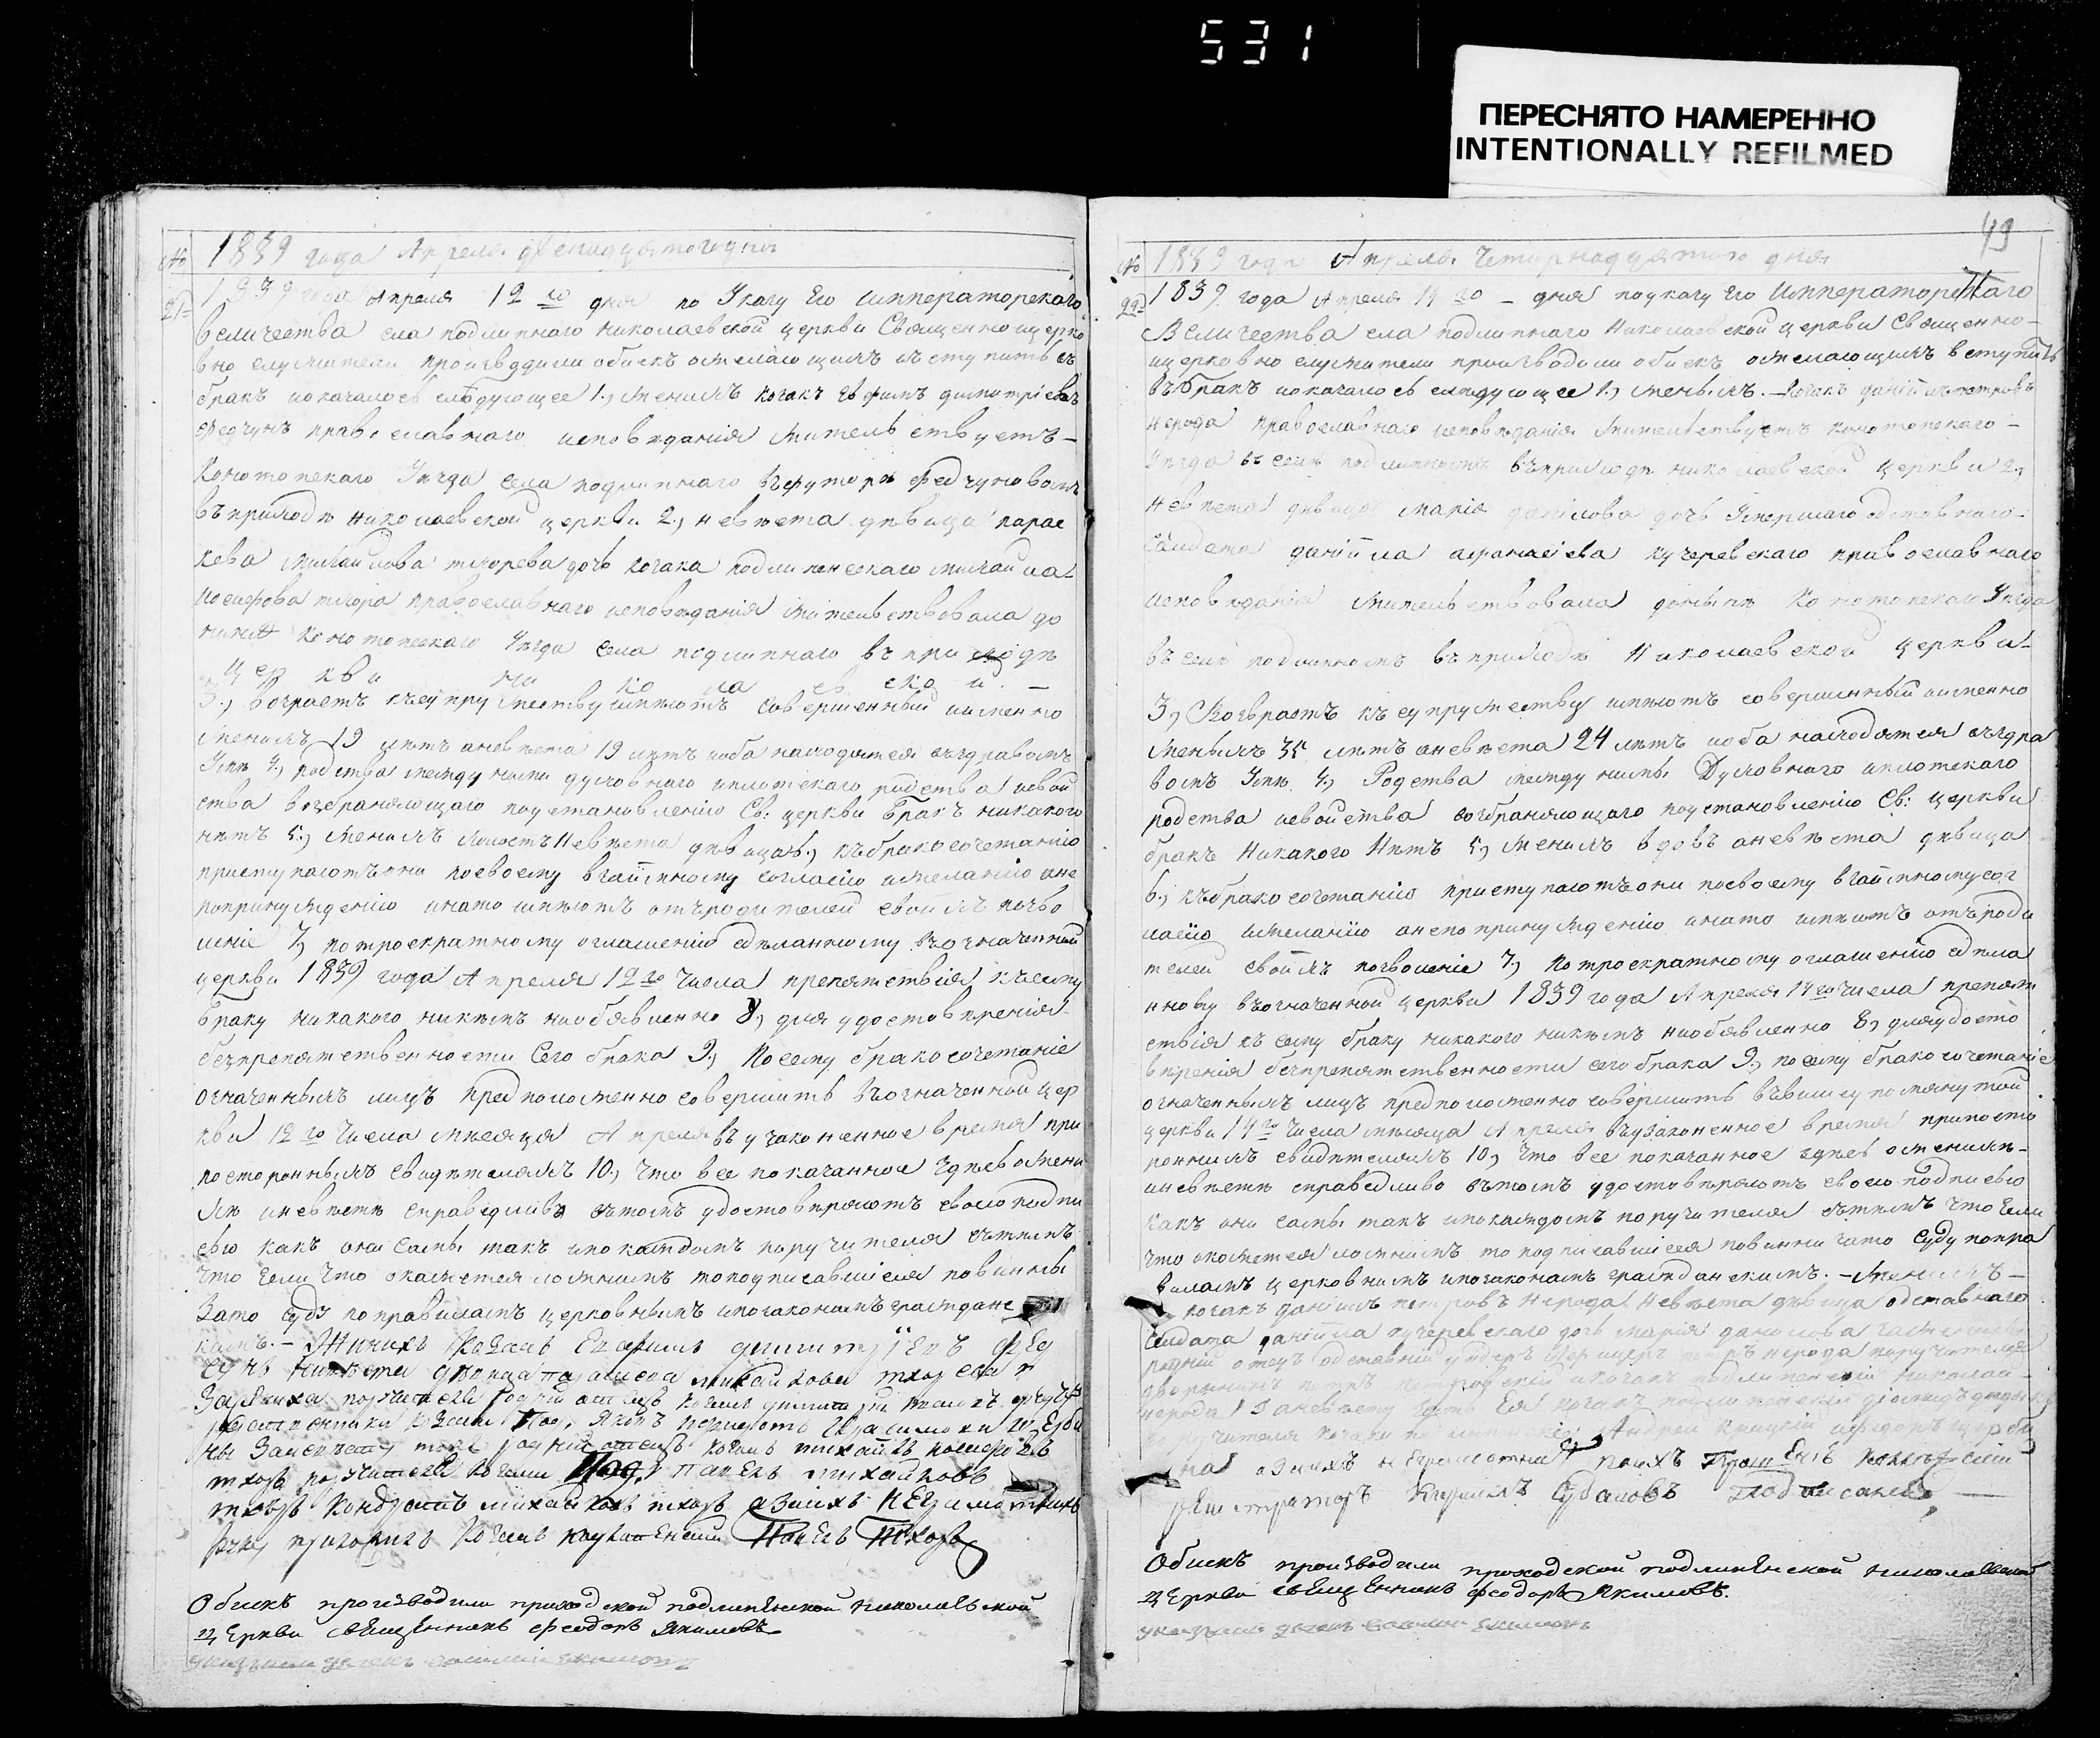 531
ПЕРЕСНЯТО НАМЕРЕННО
INTENTIONALLY REFILMED
№ 1839 года Апреля двенадцятого дня
21. 1839 года Апреля 12го дня по Указу Его Императорскаго
Величества села подлипнаго Николаевской церкви Священно и церко
вно служители производили обыск о желающих вступить въ
бракъ и оказалось следующее 1., Жених козак Ефим димитриевъ
Федчунъ православнаго исповѣданія жительствуетъ –
Конотопскаго Уѣзда села подлипнаго въ хуторѣ Федчуновомъ
въ приходѣ николаевской церкви 2., невѣста дѣвица парас
кева михайлова тхорева дочь козака подлипенскаго михайла
иосифова тхора православнаго исповѣданія жительствовала до
нинѣ Конотопскаго Уѣзда села подлипнаго въ приходѣ
церкви николаевской. –
3., Возрастъ къ супружеству имѣютъ совершенный именно
жених 19 лѣтъ а невѣста 19 лѣтъ и оба находятся въ здравомъ
Умѣ 4., родства между ними духовнаго и плотскаго родства и свой
ства возбраняющаго по установленію Св: церкви бракъ никакого
нѣтъ 5., жених холостъ невѣста дѣвица 6., къ бракосочетанію
приступаютъ они по своему взаимному согласію и желанію а не
по принуждению и на то имѣютъ отъ родителей своихъ позво
леніе 7., по троекратному оглашенію сдѣланному въ означенной
церкви 1839 года Апреля 12го числа препятствія къ сему
браку никакого никѣмъ не объявленно 8., для удостовѣренія
безпрепятственности сего брака 9., По сему бракосочетаніе
означенныхъ лицъ предположенно совершить въ означенной цер
кви 12го числа мѣсяца Апреля въ узаконенное время при
постороннихъ свидѣтеляхъ 10., что все показанное здѣсь о жени
хѣ и невѣстѣ справедливо въ томъ удостовѣряютъ своею подпи
сью какъ они самы такъ и по каждомъ поручителя съ тѣмъ
что если что окажется ложнимъ то подписавшіеся повинны
за то суду по правиламъ церковнымъ и по законамъ гражданс
камъ. – Жинихъ козакъ Ефимъ димитріевъ Фед
чунъ Нивѣста дѣвица параскева михайлова тхорева
За жениха поручители родній отецъ козакъ
Заневѣсту тожъ родній отецъ козакъ михайлъ иосифовъ
тхоръ поручители козаки павелъ михайловъ
тхоръ кондратъ михайловъ тхоръ а за ихъ неграмотнихъ
Павелъ Тхоръ
Обыскъ производили приходской подлипенской николаевской
церкви священникъ феодоръ Якимовъ
49
№ 1839 года Апреля четирнадцятого дня
22. 1839 года Апреля 14го – дня по указу Его Императорскаго
Величества села подлипнаго Николаевской церкви священно –
и церковно служители производили обыск о желающихъ вступить
въ бракъ и оказалось следующее 1., женихъ – козакъ даніилъ петровъ
нерода православнаго исповѣданія жительствуетъ конотопскаго –
Уѣзда въ селѣ подлипномъ въ приходѣ николаевской церкви 2.,
невѣста дѣвица марія данілова дочь Умершаго одставнаго
салдата даніила кучеревскаго православнаго
исповѣданія жительствовала донынѣ Конотопскаго Уѣзда
въ селѣ подлипномъ въ приходѣ Николаевской церкви –
3., Возврастъ къ супружеству имѣютъ совершенный именно
женихъ 35 лѣтъ а невѣста 24 лѣтъ и оба находятся въ здра
вомъ Умѣ 4., Родства между ними Духовнаго и плотскаго
родства и свойства возбраняющаго по установленію Св: церкви
бракъ никакого Нѣтъ 5., женихъ вдовъ а невѣста дѣвица
6., къ бракосочетанію приступаютъ они по своему взаимному сог
ласію и желанію а не по принуждению и на то имѣютъ отъ роди
телей своихъ позволеніе 7., по троекратному оглашенію сдѣла
нному въ означенной церкви 1839 года Апреля 14го числа препят
ствія къ сему браку никакого никѣмъ не объявленно 8., для удосто
вѣренія безпрепятственности сего брака 9., по сему бракосочетаніе
означенныхъ лицъ предположенно совершить въ више упомянутой
церкви 14го числа мѣсяца Апреля въ узаконенное время при посто
роннихъ свидѣтеляхъ 10., что все показанное здѣсь о женихѣ –
и невѣстѣ справедливо въ томъ удостовѣряютъ своею подписью
какъ они самы такъ и по каждомъ поручителя съ тѣмъ что если
что окажется ложнимъ то подписавшіеся повинни за то суду по пра
виламъ церковнимъ и по законамъ гражданскимъ. – женихъ –
козакъ даніилъ петровъ нерода Невѣста дѣвица одставнаго
салдата даніила кучеревскаго дочь марія данилова
Обыскъ производили приходской подлипенской николаевской
церкви священникъ феодоръ Якимовъ.